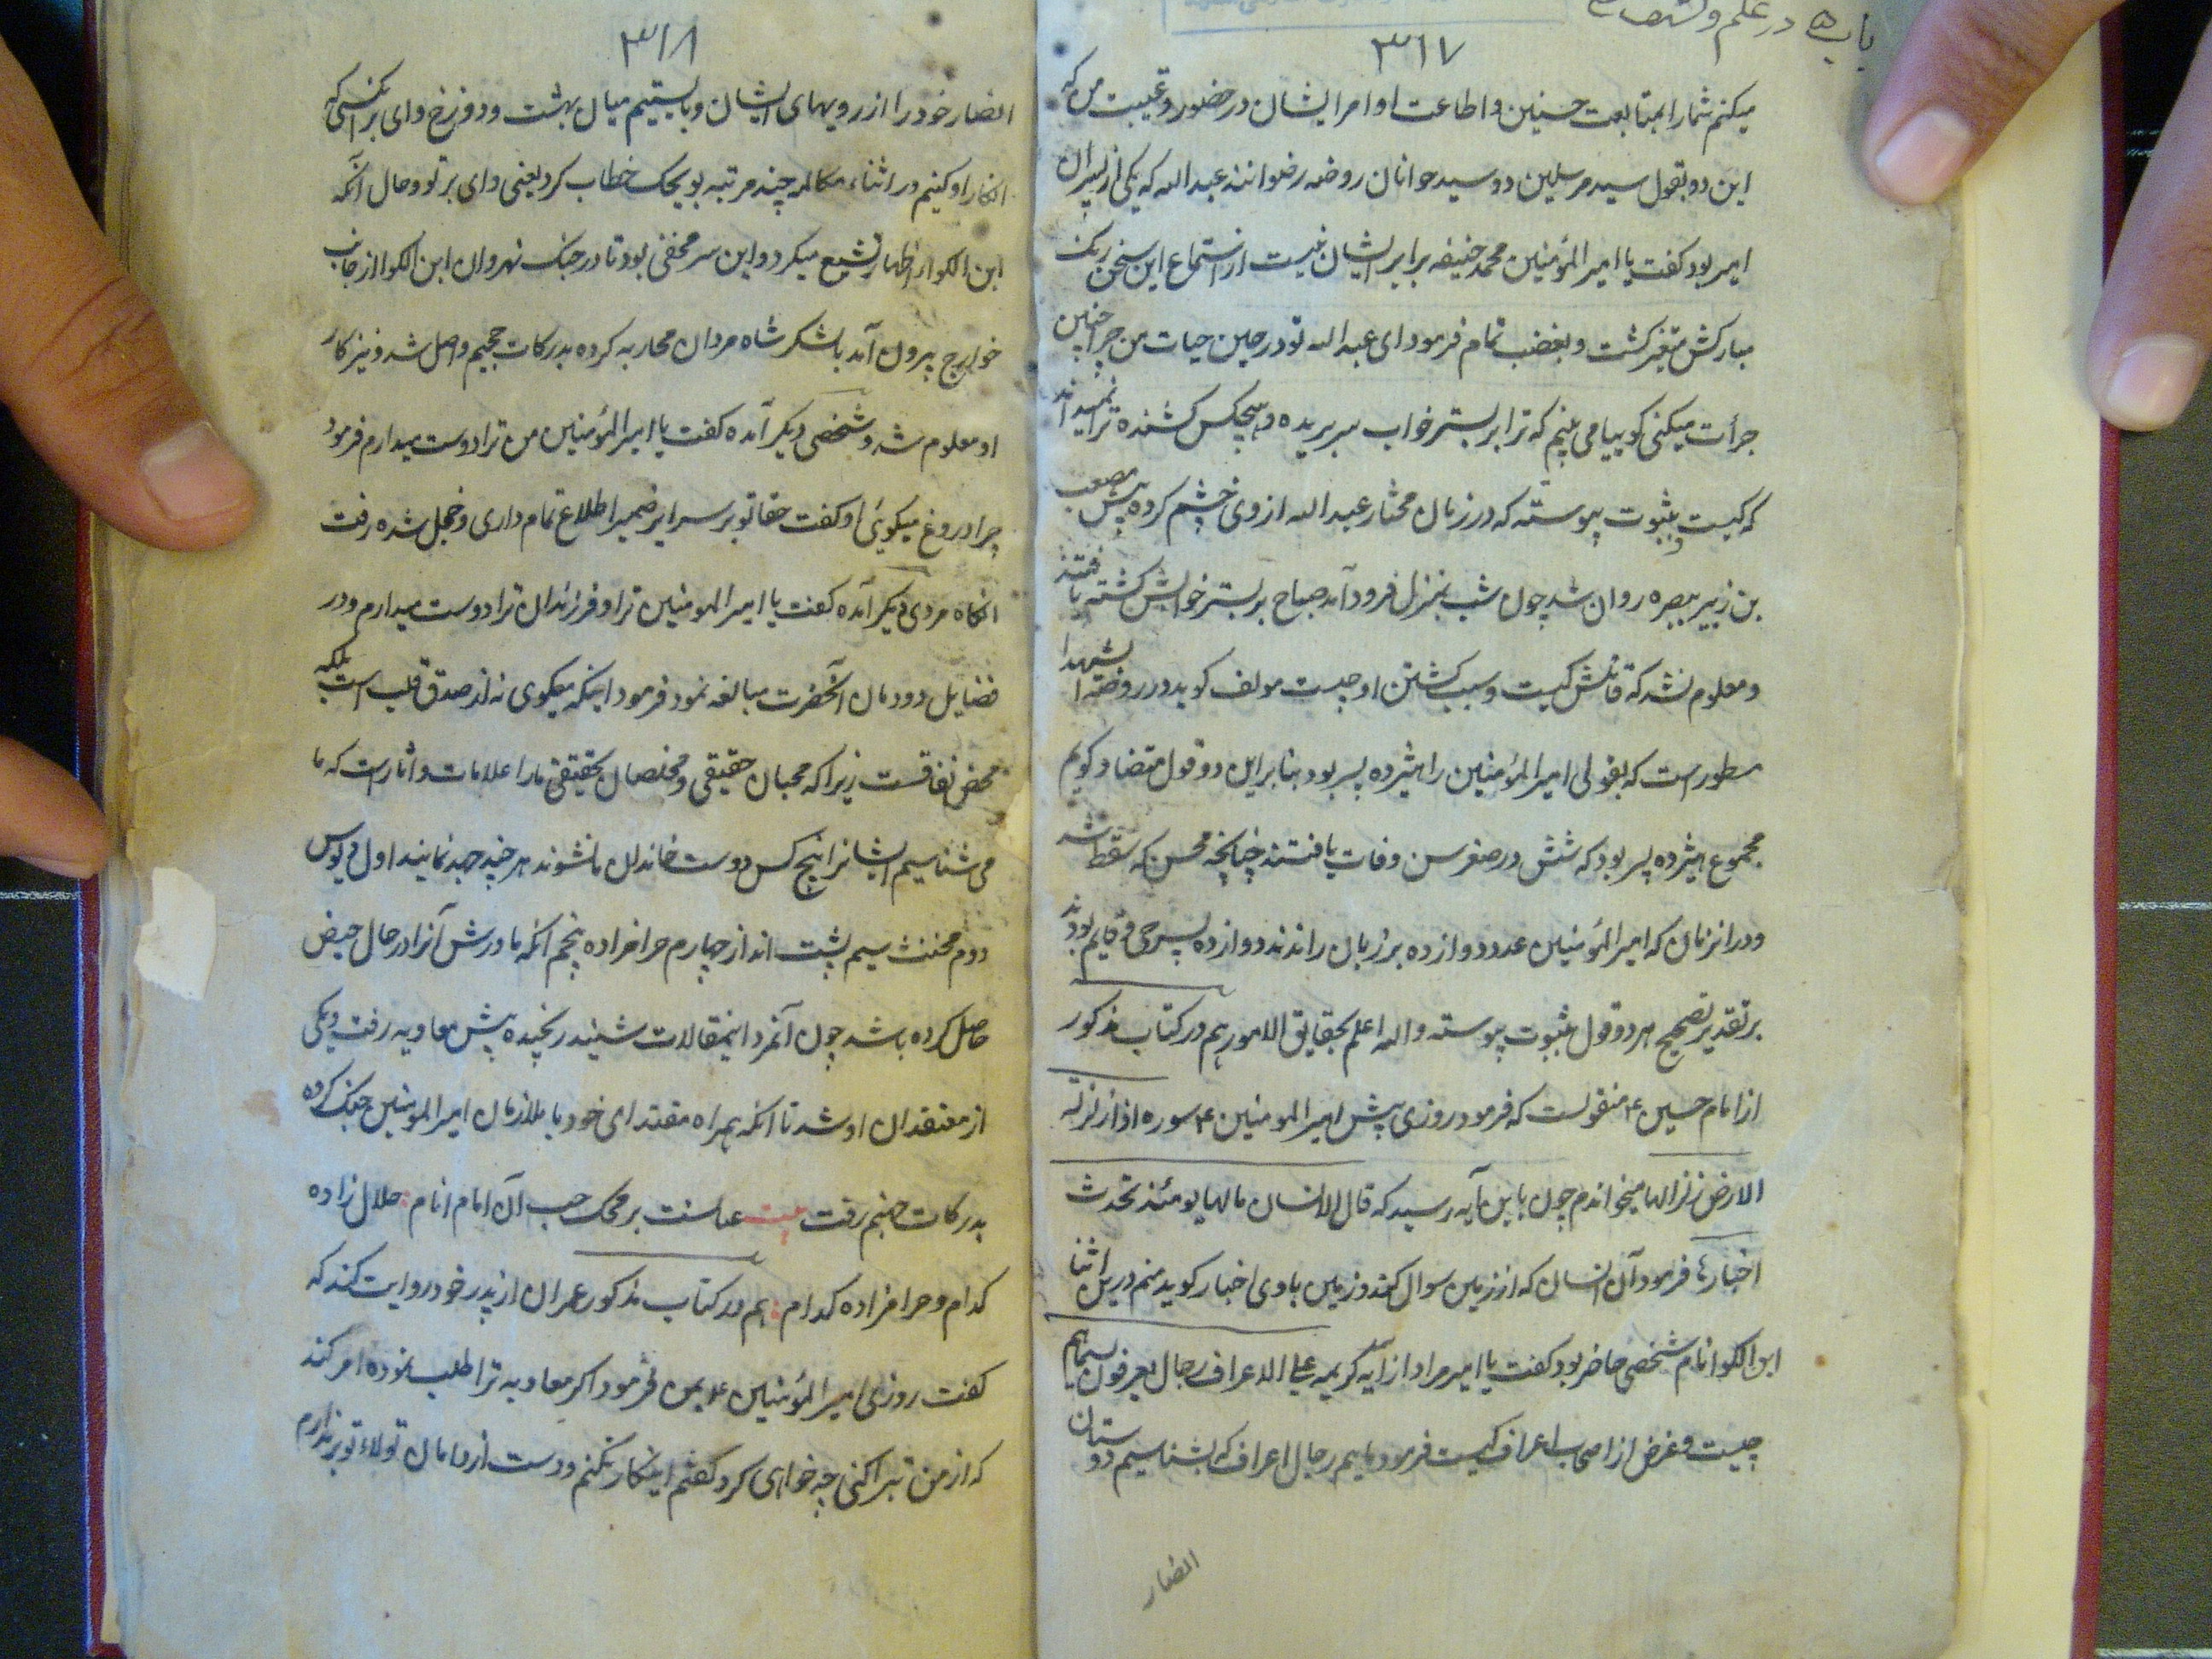 باب ۵ در علم و کشف
۳۱۷
میکنم شمارا بمتابعت حسنین و اطاعت اوامر ایشان در حضور و غیبت من که
این دو بقول سید مرسلین دو سید جوانان روضه رضوانند عبدالله که یکی از پسران
امیر بود کفت یا امیرالمؤمنین محمد حنیفه برابر ایشان نیست از استماع این سخن رنک
مبارکش متغیر کشت و بغضب تمام فرمود ای عبدالله تو در حین حیات من چرا چنین
جرأت میکنی کویا می بینم که ترا بر بستر خواب سر بریده و هیچکس کشنده ترا نمیداند
که کیست و بثبوت پیوسته که در زمان مختار عبدالله از وی خشم کرده پیش مصعب
بن زبیر ببصره روان شد چون شب بمنزل فرود آمد صباح بر بستر خوابش کشته یافتند
و معلوم نشد که قاتلش کیست و سبب کشتن او چیست مولف کوید در روضة الشهدا
مسطورست که بقولی امیرالمؤمنین را هیژده پسر بود بنابراین دو قول متضاد کویم
مجموع هیژده پسر بود که شش در صغر سن وفات یافتند چنانچه محسن که سقط شد
و در انزمان که امیرالمؤمنین عدد دوازده بر زبان راندند دوازده پسر حی و قایم بودند
بر تقدیر تصحیح هر دو قول بثبوت پیوسته والله اعلم بحقایق الامور هم در کتاب مذکور
از امام حسین ع منقولست که فرمود روزی پیش امیرالمومنین ع سوره اذا زلزلة
الارض زلزالها میخواندم چون باین آیه رسید که قال الانسان مالها یومئذ تحدث
اخبارها فرمود آن انسان که از زمین سوال کند و زمین با وی اخبار کوید منم درین اثنا
ابن الکوا نام شخصی حاضر بود کفت یا امیر مراد از آیه کریمه علی الاعراف رجال یعرفون بسیماهم
چیست و غرض از اصحاب اعراف کیست فرمود ماییم رجال اعراف که بشناسیم دوستان
انصار
۳۱۸
انصار خود را از رویهای ایشان و بایستیم میان بهشت و دوزخ و وای بر انکسی که
انکار او کنیم در اثناء مکالمه چند مرتبه بویحک خطاب کرد یعنی وای بر تو و حال آنکه
ابن الکوا اظهار تشیع میکرد و این سر مخفی بود تا در جنک نهروان ابن الکوا از جانب
خوارج بیرون آمد با لشکر شاه مردان محاربه کرده بدرکات جحیم واصل شد و نیز کار
او معلوم شد و شخصی دیکر آمده کفت یا امیرالمؤمنین من ترا دوست میدارم فرمود
چرا دروغ میکوئی او کفت حقا تو بر سرایر ضمیر اطلاع تمام داری و خجل شده رفت
انکاه مردی دیکر آمده کفت یا امیرالمومنین ترا و فرزندان ترا دوست میدارم و در
فضایل دودمان آنحضرت مبالغه نمود فرمود اینکه میکوی نه از صدق قلب است بلکه
محض نفاقست زیرا که محبان حقیقی و مخلصان تحقیقی مارا علامات و اثارست که ما
می شناسیم ایشانرا پنج کس دوست خاندان ما نشوند هر چند جهد نمایند اول دیوس
دوم مخنث سیم پشت انداز چهارم حرامزاده پنجم انکه مادرش آنرا در حال حیض
حاصل کرده باشد چون آنمرد اینمقالات شنید رنجیده پیش معاویه رفت و یکی
از معتقدان او شد تا انکه همراه مقتدای خود با ملازمان امیرالمومنین جنک کرده
بدرکات جهنم رفت بیت عیانست بر محک حب آن امام انام حلال زاده
کدام و حرامزاده کدام هم در کتاب مذکور عمران از پدر خود روایت کند که
کفت روزی امیرالمؤمنین ع بمن فرمود اکر معاویه ترا طلب نموده امر کند
که از من تبرا کنی چه خواهی کرد کفتم اینکار نکنم و دست از دامان تولاء تو برندارم